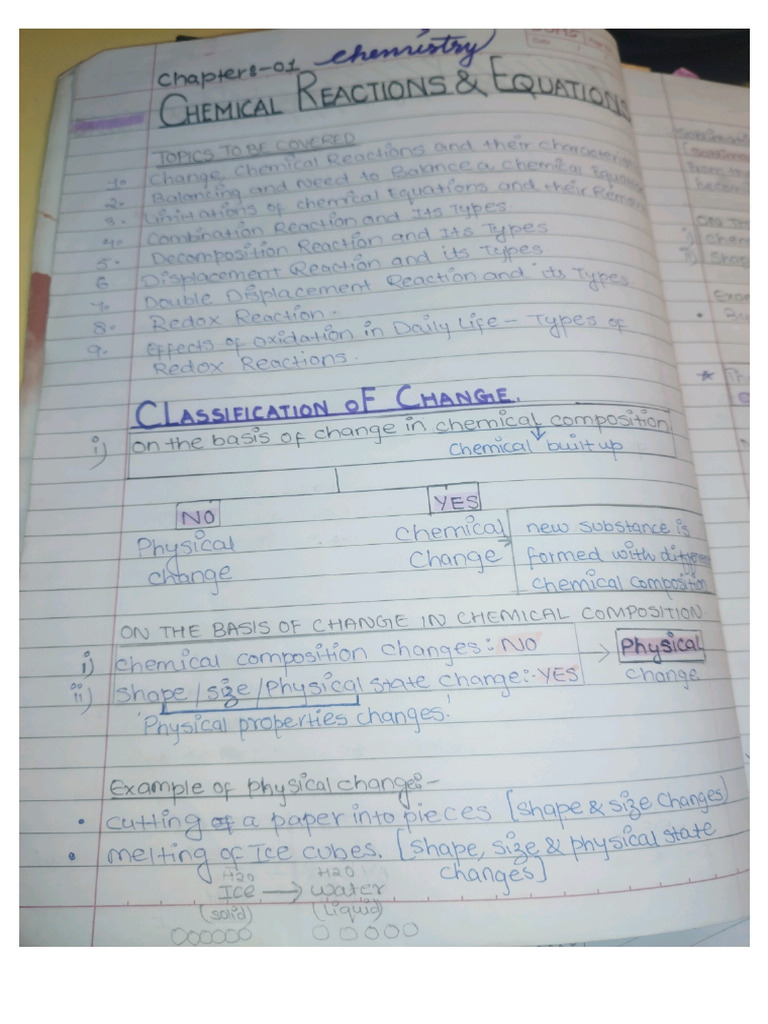 Chapters-01 chemistry
CHEMICAL REACTIONS & EQUATIONS
TOPICS TO BE COVERED
1. Change, Chemical Reactions and their
2. Balancing and Need to Balance a Chemical
3. Limitations of chemical Equations and their
4. Combination Reaction and Its Types.
5. Decomposition Reaction and Its Types
6 Displacement Reaction and its Types
7. Double Displacement Reaction and its Types
8. Redox Reaction.
9. Effects of Oxidation in Daily Life - Types of
Redox Reactions.
CLASSIFICATION OF CHANGE.
i) on the basis of change in chemical composition
Chemical built up
NO YES
Physical change
Chemical Change
new substance is
formed with
chemical composition
ON THE BASIS OF CHANGE IN CHEMICAL COMPOSITION
i) Chemical composition changes: NO → Physical
ii) Shape/size/Physical state change:- YES change
'Physical properties changes.'
Example of physical change:-
• cutting of a paper into pieces [shape & size changes)
• melting of Ice cubes. [shape, size & physical state
changes]
H2O H2O
Ice → Water
(solid) (Liquid)
ON TH
i) Chem
ii) Shap
Exam